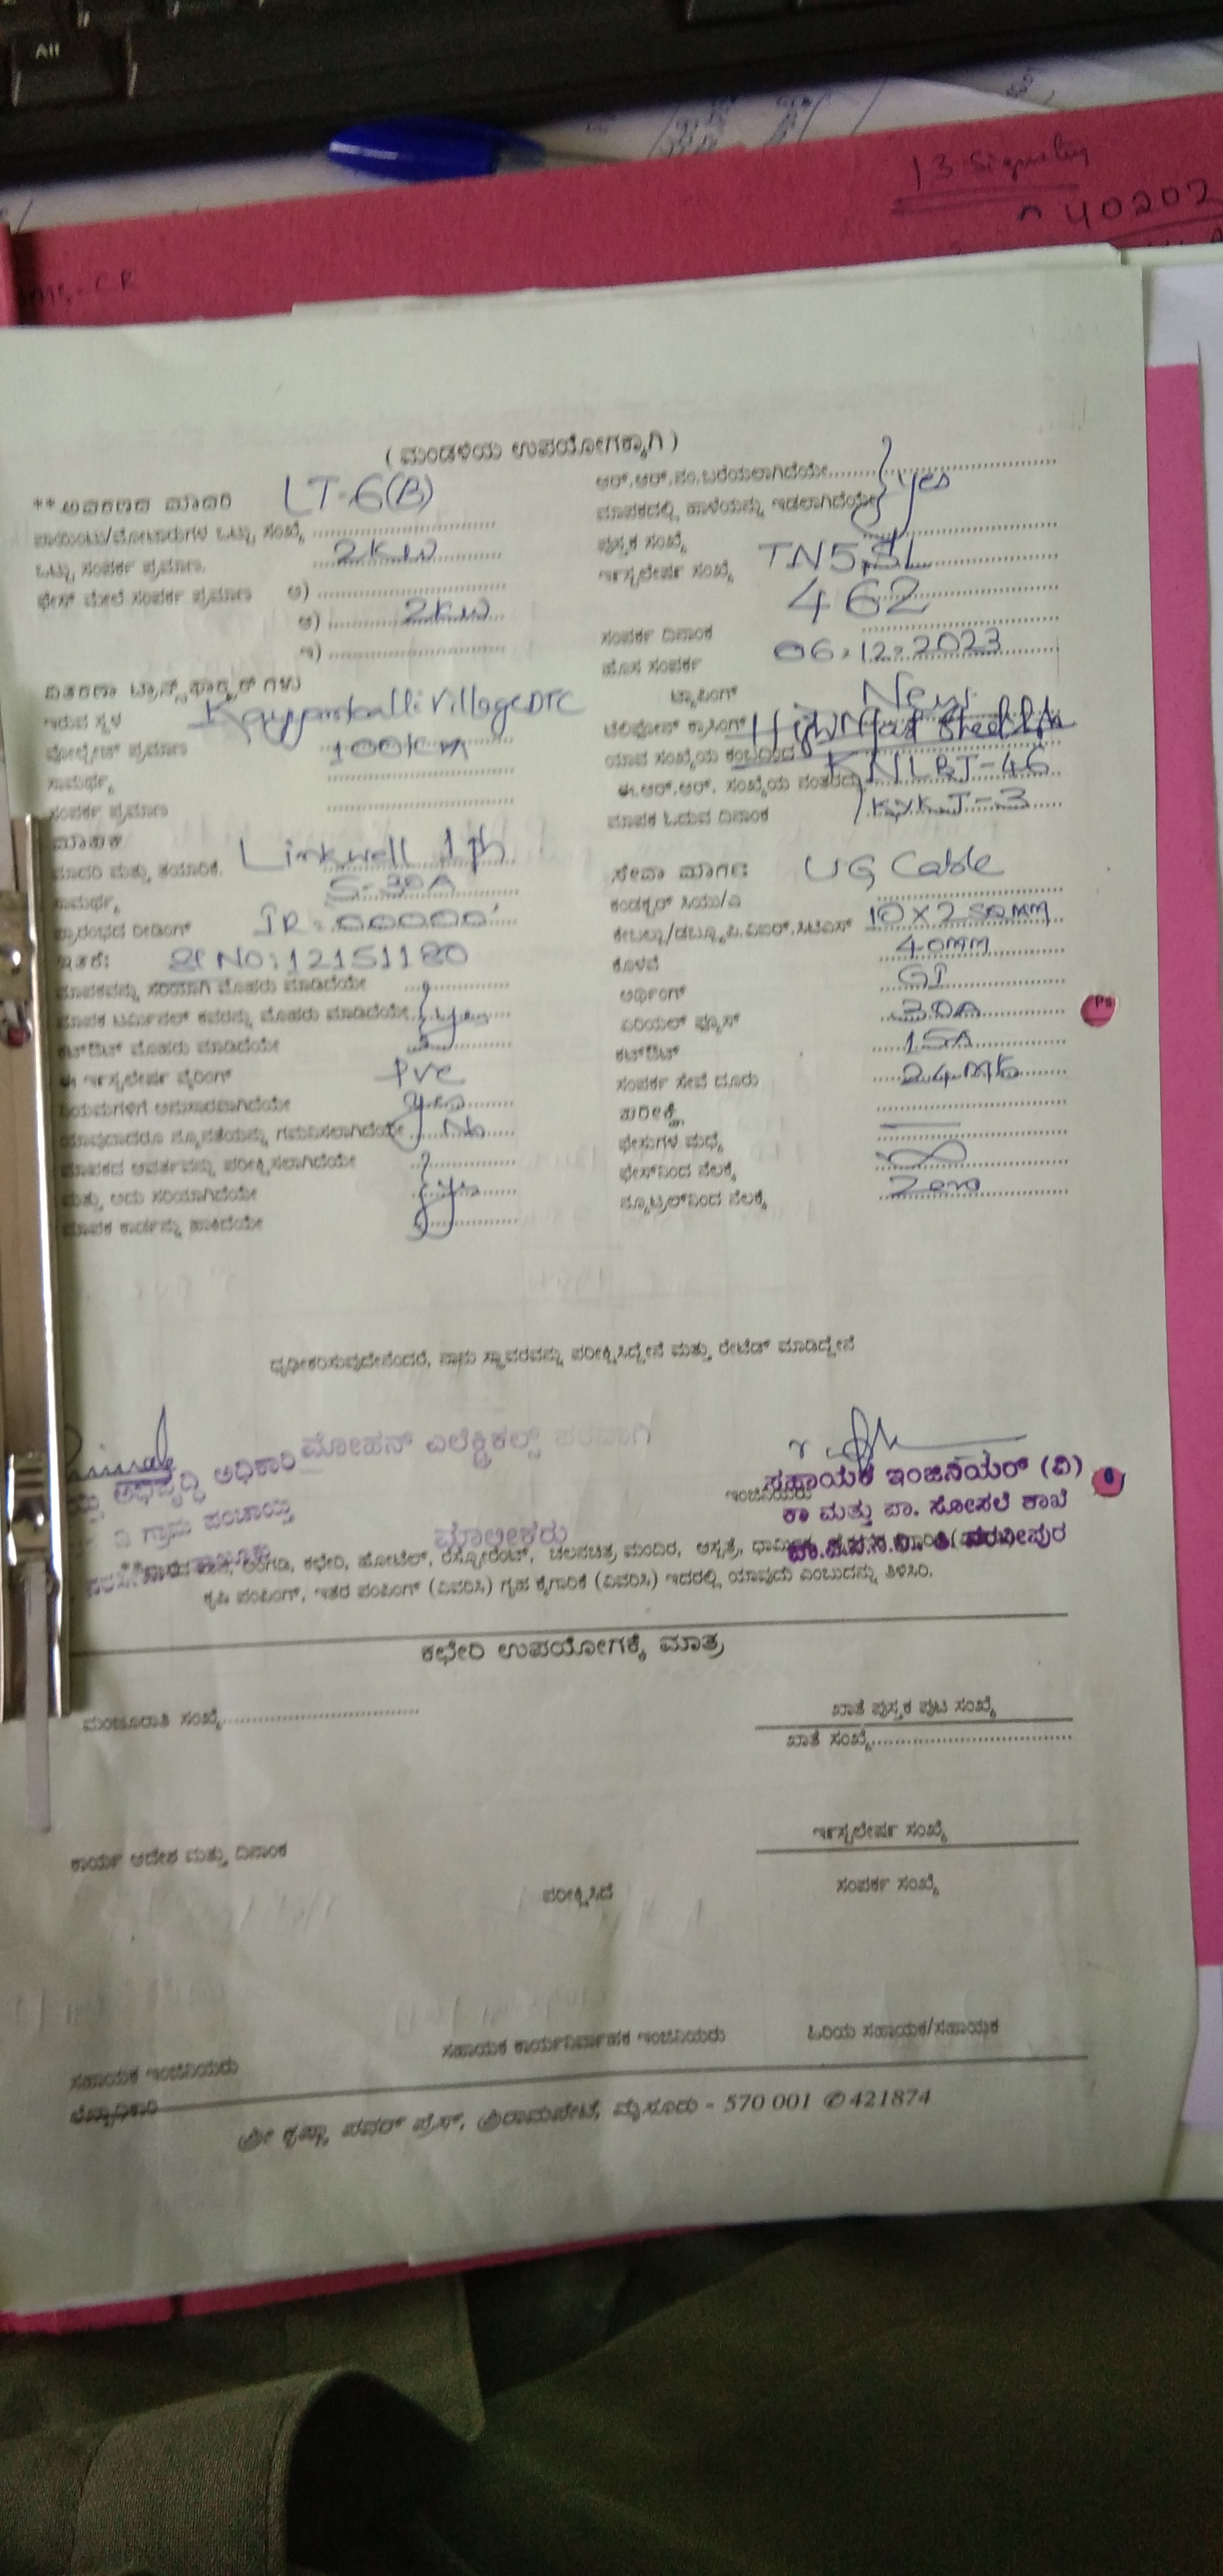 All
13 Signality
40202
( ಮಂಡಳಿಯ ಉಪಯೋಗಕ್ಕಾಗಿ )
** ಆವರಣದ ಮಾದರಿ LT-6(B)
ಒಟ್ಟು ಸಂಖ್ಯೆ
ಒಟ್ಟು ಸಂಪರ್ಕ ಪ್ರಮಾಣ. 2KW
ಫೇಸ್ ಮೇಲೆ ಸಂಪರ್ಕ ಪ್ರಮಾಣ ಅ)
ಆ) 2KW
ಇ)
ವಿತರಣಾ ಟ್ರಾನ್ಸ್‌ಫಾರ್ಮರ್‌ಗಳು
ಇರುವ ಸ್ಥಳ Village DTC
ವೋಲ್ಟೇಜ್ ಪ್ರಮಾಣ 100KVA
ಸಾಮರ್ಥ್ಯ
ಸಂಪರ್ಕ ಪ್ರಮಾಣ
ಮಾಪಕ
ಮಾದರಿ ಮತ್ತು ತಯಾರಿಕೆ. Linkwell 1ph
ಸಾಮರ್ಥ್ಯ 5-30A
ಪ್ರಾರಂಭದ ರೀಡಿಂಗ್ IR = 00000
ಇತರೆ: Sl No: 12151180
ಮಾಪಕವನ್ನು ಸರಿಯಾಗಿ ಮೊಹರು ಮಾಡಿದೆಯೇ
ಮಾಪಕ ಟರ್ಮಿನಲ್ ಕವರನ್ನು ಮೊಹರು ಮಾಡಿದೆಯೇ yes
ಕಟ್‌ಔಟ್ ಮೊಹರು ಮಾಡಿದೆಯೇ
ಈ ಇನ್ಸ್ಟಲೇಷನ್ ವೈರಿಂಗ್ PVC
ನಿಯಮಗಳಿಗೆ ಅನುಸಾರವಾಗಿದೆಯೇ yes
ಯಾವುದಾದರೂ ನ್ಯೂನತೆಯನ್ನು ಗಮನಿಸಲಾಗಿದೆಯೇ No
ಮಾಪಕದ ಆವರ್ತವನ್ನು ಪರೀಕ್ಷಿಸಲಾಗಿದೆಯೇ
ಮತ್ತು ಅದು ಸರಿಯಾಗಿದೆಯೇ yes
ಮಾಪಕ ಕಾರ್ಡನ್ನು ಹಾಕಿದೆಯೇ
ಆರ್.ಆರ್.ನಂ.ಬರೆಯಲಾಗಿದೆಯೇ
ಮಾಪಕದಲ್ಲಿ ಹಾಳೆಯನ್ನು ಇಡಲಾಗಿದೆಯೇ yes
ಪುಸ್ತಕ ಸಂಖ್ಯೆ
ಇನ್ಸ್ಟಲೇಷನ್ ಸಂಖ್ಯೆ TN5,SL
462
ಸಂಪರ್ಕ ದಿನಾಂಕ 06.12.2023
ಹೊಸ ಸಂಪರ್ಕ
ಟ್ಯಾಪಿಂಗ್ New
ಟೆಲಿಫೋನ್ ಕ್ರಾಸಿಂಗ್
ಯಾವ ಸಂಖ್ಯೆಯ ಕಂಬದಿಂದ KNLBJ-46
ಈ.ಆರ್.ಆರ್. ಸಂಖ್ಯೆಯ ನಂತರದ್ದು KYKJ-3
ಮಾಪಕ ಓದುವ ದಿನಾಂಕ
ಸೇವಾ ಮಾರ್ಗ: UG Cable
ಕಂಡಕ್ಟರ್ ಸಿಯು/ಎ
10X2 SQMM
ಕೊಳವೆ 40MM
ಅರ್ಥಿಂಗ್ GI
ಏರಿಯಲ್ ಫ್ಯೂಸ್ 30A
ಕಟ್‌ಔಟ್ 15A
ಸಂಪರ್ಕ ಸೇವೆ ದೂರು 24 Mts
ಪರೀಕ್ಷೆ
ಫೇಸುಗಳ ಮಧ್ಯೆ
ಫೇಸ್‌ನಿಂದ ನೆಲಕ್ಕೆ ∞
ನ್ಯೂಟ್ರಲ್‌ನಿಂದ ನೆಲಕ್ಕೆ Zero
ಧೃಢೀಕರಿಸುವುದೇನೆಂದರೆ, ನಾನು ಸ್ಥಾವರವನ್ನು ಪರೀಕ್ಷಿಸಿದ್ದೇನೆ ಮತ್ತು ರೇಟೆಡ್ ಮಾಡಿದ್ದೇನೆ
ಅಭಿವೃದ್ಧಿ ಅಧಿಕಾರಿ
ಗ್ರಾಮ ಪಂಚಾಯ್ತಿ
ಮೋಹನ್ ಎಲೆಕ್ಟ್ರಿಕಲ್ಸ್ ಪರವಾಗಿ
ಮಾಲೀಕರು
ಇಂಜಿನಿಯರು
ಸಹಾಯಕ ಇಂಜಿನಿಯರ್ (ವಿ)
ಕಾ ಮತ್ತು ಪಾ. ಸೋಸಲೆ ಶಾಖೆ
ಅಂಗಡಿ, ಕಛೇರಿ, ಹೋಟೆಲ್, ರೆಸ್ಟೋರೆಂಟ್, ಚಲನಚಿತ್ರ ಮಂದಿರ, ಆಸ್ಪತ್ರೆ,
ಕೃಷಿ ಪಂಪಿಂಗ್, ಇತರ ಪಂಪಿಂಗ್ (ವಿವರಿಸಿ) ಗೃಹ ಕೈಗಾರಿಕೆ (ವಿವರಿಸಿ) ಇದರಲ್ಲಿ ಯಾವುದು ಎಂಬುದನ್ನು ತಿಳಿಸಿರಿ.
ಕಛೇರಿ ಉಪಯೋಗಕ್ಕೆ ಮಾತ್ರ
ಮಂಜೂರಾತಿ ಸಂಖ್ಯೆ
ಖಾತೆ ಪುಸ್ತಕ ಪುಟ ಸಂಖ್ಯೆ
ಖಾತೆ ಸಂಖ್ಯೆ
ಇನ್ಸ್ಟಲೇಷನ್ ಸಂಖ್ಯೆ
ಕಾರ್ಯ ಆದೇಶ ಮತ್ತು ದಿನಾಂಕ
ಪರೀಕ್ಷಿಸಿದೆ
ಸಂಪರ್ಕ ಸಂಖ್ಯೆ
ಸಹಾಯಕ ಇಂಜಿನಿಯರು
ಸಹಾಯಕ ಕಾರ್ಯನಿರ್ವಾಹಕ ಇಂಜಿನಿಯರು
ಹಿರಿಯ ಸಹಾಯಕ/ಸಹಾಯಕ
ಶ್ರೀ ಕೃಷ್ಣಾ ಪವರ್ ಪ್ರೆಸ್, ಶ್ರೀರಾಮಪೇಟೆ, ಮೈಸೂರು - 570 001 ✆ 421874